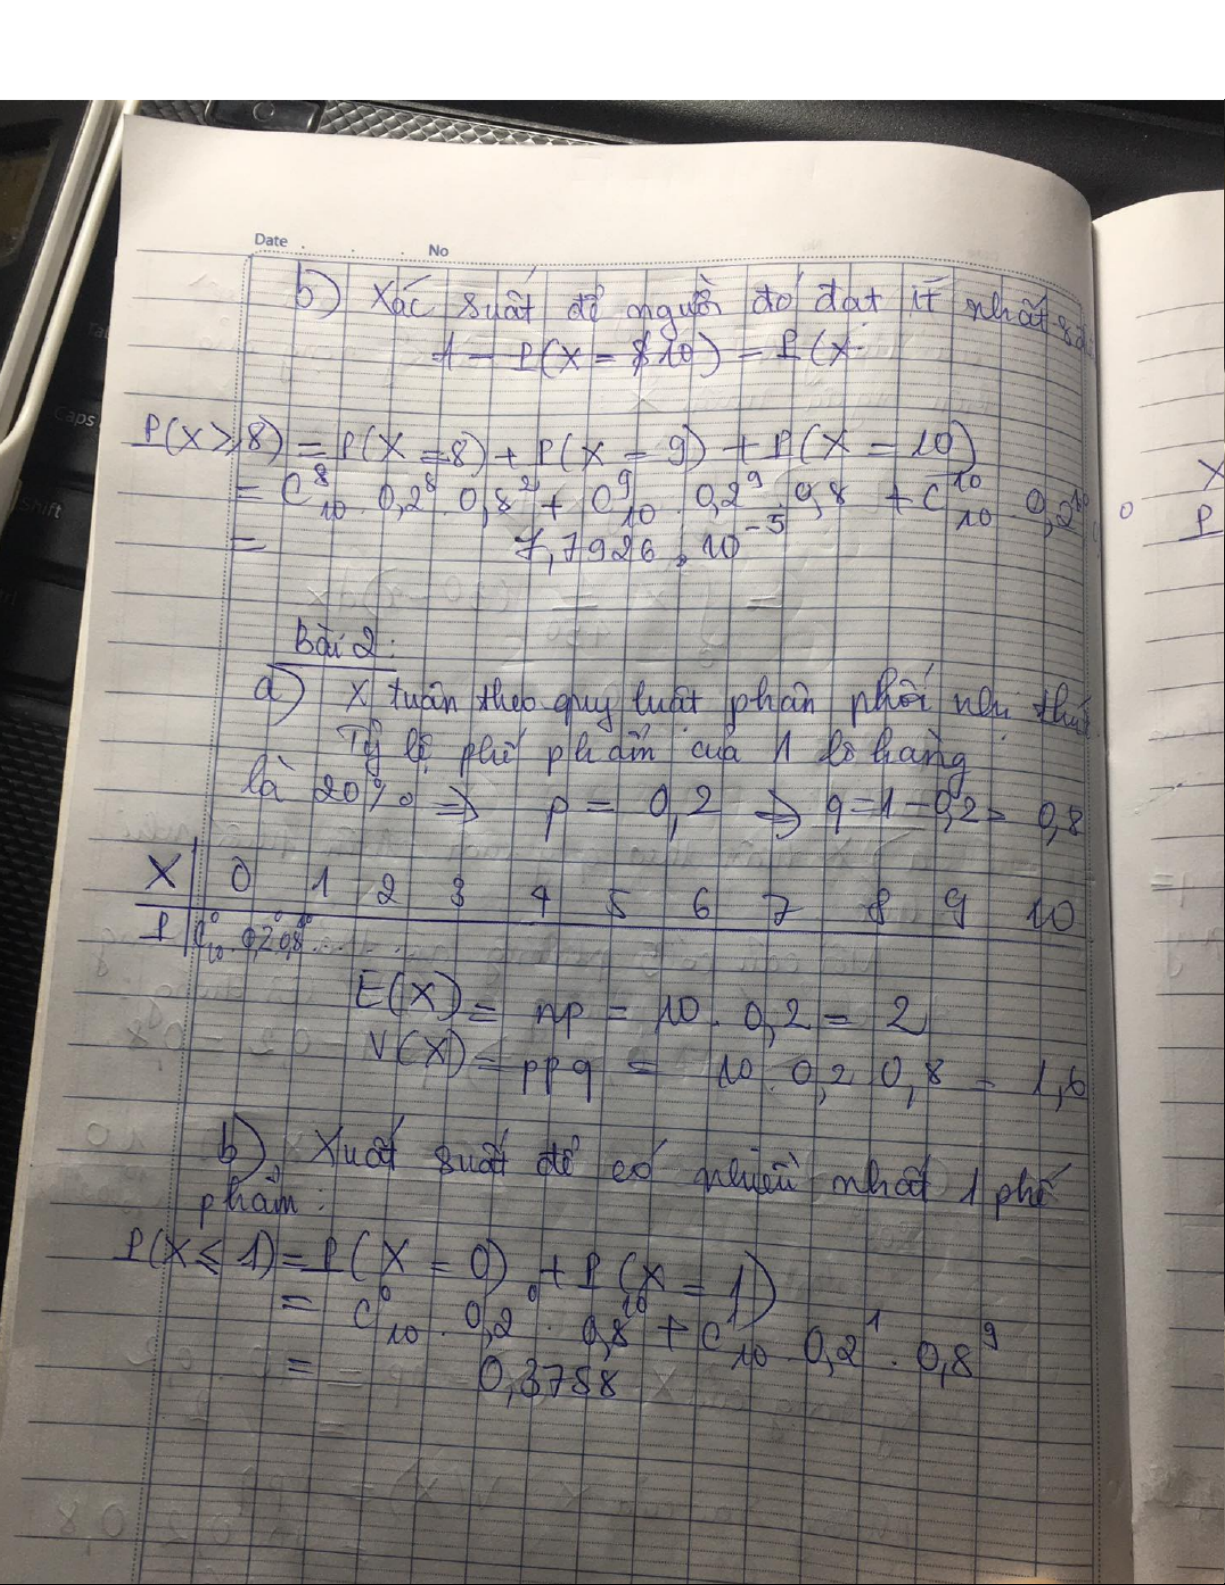 Date . . . No
b) Xác suất để người đó đạt ít nhất 8đ
1 - P(X = 10) = P(X
P(X ≥ 8) = P(X = 8) + P(X = 9) + P(X = 10)
= C⁸₁₀ . 0,2⁸ . 0,8² + C⁹₁₀ . 0,2⁹ . 0,8 + C¹⁰₁₀ . 0,2¹⁰
= 7,7926 . 10⁻⁵
Bài 2:
a) X tuân theo quy luật phân phối nhị thức
Tỷ lệ phế phẩm của 1 lô hàng
là 20% => p = 0,2 => q = 1 - 0,2 = 0,8
X 0 1 2 3 4 5 6 7 8 9 10
P C⁰₁₀ . 0,2⁰ 0,8¹⁰ ...
E(X) = np = 10 . 0,2 = 2
V(X) = npq = 10 . 0,2 0,8 = 1,6
b), Xuất suất để có nhiều nhất 1 phế
phẩm :
P(X ≤ 1) = P(X = 0) + P(X = 1)
= C⁰₁₀ . 0,2⁰ . 0,8¹⁰ + C¹₁₀ . 0,2¹ . 0,8⁹
= 0,3758
X
P